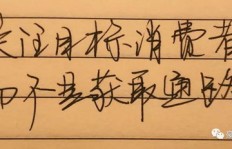 关注目标消费者
而不是获取通路